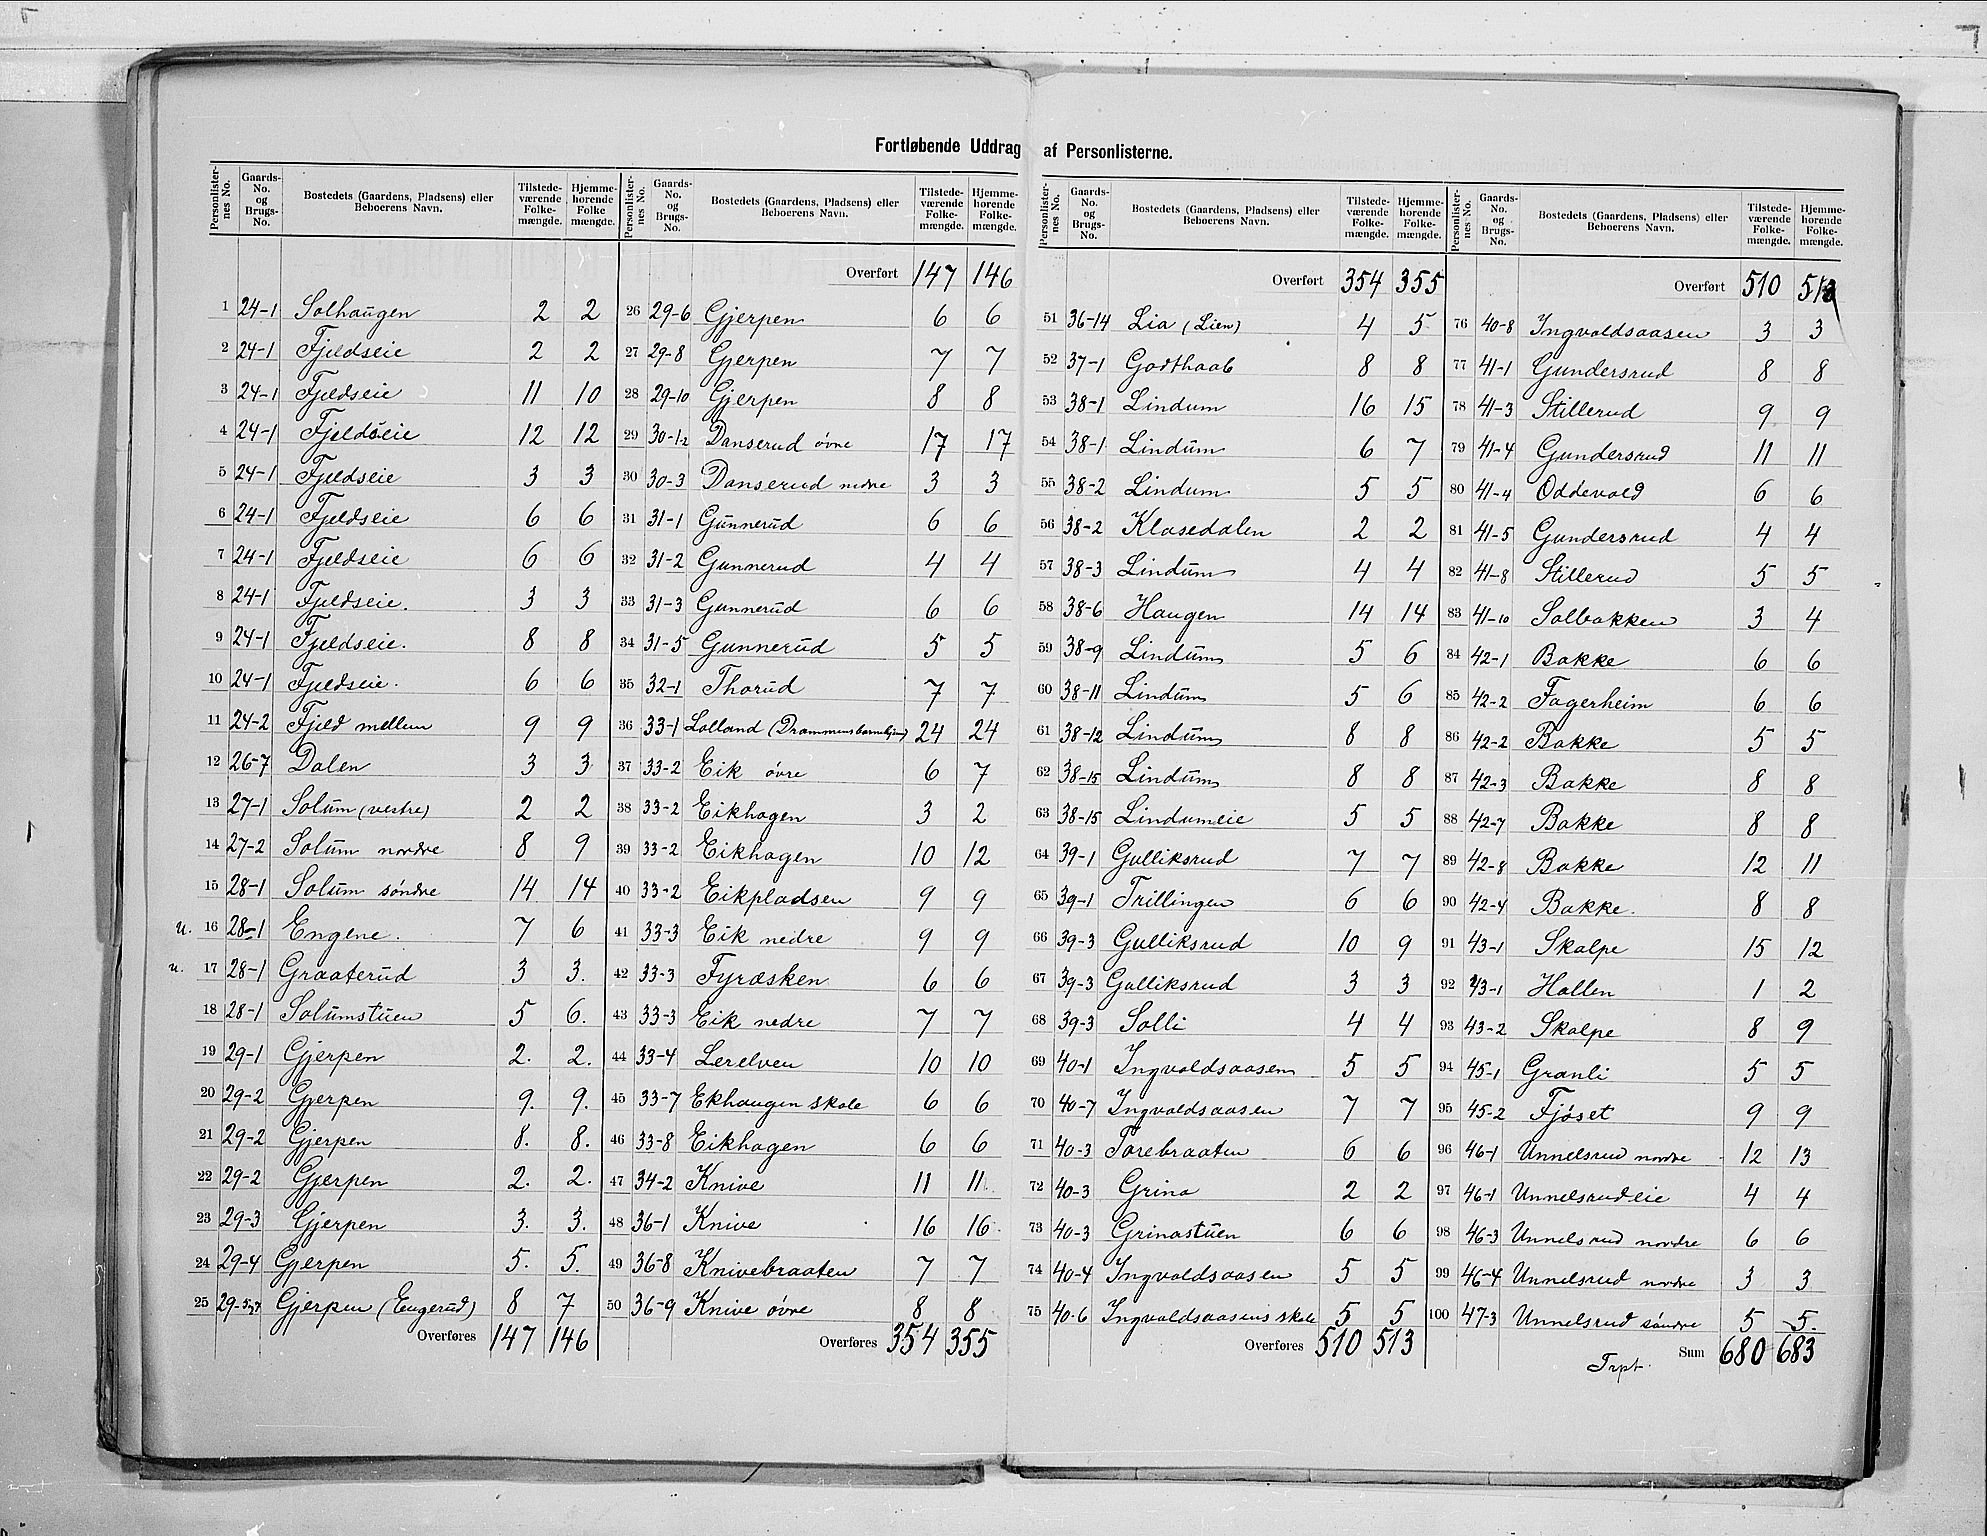 Fortløbende Uddrag af Personlisterne.
Personlisternes No. Gaards-No. og Brugs-No. Bostedets (Gaardens, Pladsens) eller Beboerens Navn. Tilstedeværende Folkemængde. Hjemmehørende Folkemængde.
1 24-1 Solhaugen 2 2
2 24-1 Fjeldseie 2 2
3 24-1 Fjeldseie 11 10
4 24-1 Fjeldseie 12 12
5 24-1 Fjeldseie 3 3
6 24-1 Fjeldseie 6 6
7 24-1 Fjeldseie 6 6
8 24-1 Fjeldseie. 3 3
9 24-1 Fjeldseie. 8 8
10 24-1 Fjeldseie. 6 6
11 24-2 Fjeld mellem 9 9
12 26-7 Dalen 3 3
13 27-1 Solum (vestre) 2 2
14 27-2 Solum nordre 8 9
15 28-1 Solum søndre 14 14
u. 16 28-1 Engene. 7 6
u. 17 28-1 Graaterud 3 3.
18 28-1 Solumstuen 5 6.
19 29-1 Gjerpen 2. 2.
20 29-2 Gjerpen 9. 9.
21 29-2 Gjerpen 8. 8.
22 29-2 Gjerpen 2. 2.
23 29-3 Gjerpen 3. 3.
24 29-4 Gjerpen 5. 5.
25 29-5,7 Gjerpen (Engerud) 8 7
Overføres 147 146
Personlisternes No. Gaards-No. og Brugs-No. Bostedets (Gaardens, Pladsens) eller Beboerens Navn. Tilstedeværende Folkemængde. Hjemmehørende Folkemængde.
Overført 147 146
26 29-6 Gjerpen 6 6
27 29-8 Gjerpen 7 7
28 29-10 Gjerpen 8 8
29 30-1,2 Danserud øvre 17 17
30 30-3 Danserud nedre 3 3
31 31-1 Gunnerud 6 6
32 31-2 Gunnerud 4 4
33 31-3 Gunnerud 6 6
34 31-5 Gunnerud 5 5
35 32-1 Thorud 7 7
36 33-1 Lolland (Drammensbarnehjem) 24 24
37 33-2 Eik øvre 6 7
38 33-2 Eikhagen 3 2
39 33-2 Eikhagen 10 12
40 33-2 Eikpladsen 9 9
41 33-3 Eik nedre 9 9
42 33-3 Fyræsken 6 6
43 33-3 Eik nedre 7 7
44 33-4 Lerelven 10 10
45 33-7 Ekhaugen skole 6 6
46 33-8 Eikhagen 6 6
47 34-2 Knive 11 11
48 36-1 Knive 16 16
49 36-8 Knivebraaten 7 7
50 36-9 Knive øvre 8 8
Overføres 354 355
Personlisternes No. Gaards-No. og Brugs-No. Bostedets (Gaardens, Pladsens) eller Beboerens Navn. Tilstedeværende Folkemængde. Hjemmehørende Folkemængde.
Overført 354 355
51 36-14 Lia (Lien) 4 5
52 37-1 Godthaab 8 8
53 38-1 Lindum 16 15
54 38-1 Lindum 6 7
55 38-2 Lindum 5 5
56 38-2 Klasedalen 2 2
57 38-3 Lindum 4 4
58 38-6 Haugen 14 14
59 38-9 Lindum 5 6
60 38-11 Lindum 5 6
61 38-12 Lindum 8 8
62 38-15 Lindum 8 8
63 38-15 Lindumeie 5 5
64 39-1 Gulliksrud 7 7
65 39-1 Trillingen 6 6
66 39-3 Gulliksrud 10 9
67 39-3 Gulliksrud 3 3
68 39-3 Solli 4 4
69 40-1 Ingvaldsaasen 5 5
70 40-7 Ingvaldsaasen 7 7
71 40-3 Torebraaten 6 6
72 40-3 Grina 2 2
73 40-3 Grinastuen 6 6
74 40-4 Ingvaldsaasen 5 5
75 40-6 Ingvaldsaasens skole 5 5
Overføres 510 513
Personlisternes No. Gaards-No. og Brugs-No. Bostedets (Gaardens, Pladsens) eller Beboerens Navn. Tilstedeværende Folkemængde. Hjemmehørende Folkemængde.
Overført 510 513
76 40-8 Ingvaldsaasen 3 3
77 41-1 Gundersrud 8 8
78 41-3 Stillerud 9 9
79 41-4 Gundersrud 11 11
80 41-4 Oddevold 6 6
81 41-5 Gundersrud 4 4
82 41-8 Stillerud 5 5
83 41-10 Solbakken 3 4
84 42-1 Bakke 6 6
85 42-2 Fagerheim 6 6
86 42-2 Bakke 5 5
87 42-3 Bakke 8 8
88 42-7 Bakke 8 8
89 42-8 Bakke 12 11
90 42-4 Bakke. 8 8
91 43-1 Skalpe 15 12
92 43-1 Hallen 1 2
93 43-2 Skalpe 8 9
94 45-1 Granli 5 5
95 45-2 Fjøset 9 9
96 46-1 Unnelsrud nordre 12 13
97 46-1 Unnelsrudeie 4 4
98 46-3 Unnelsrud nordre 6 6
99 46-4 Unnelsrud nordre 3 3
100 47-3 Unnelsrud søndre 5 5.
Sum 680 683
Trpt.